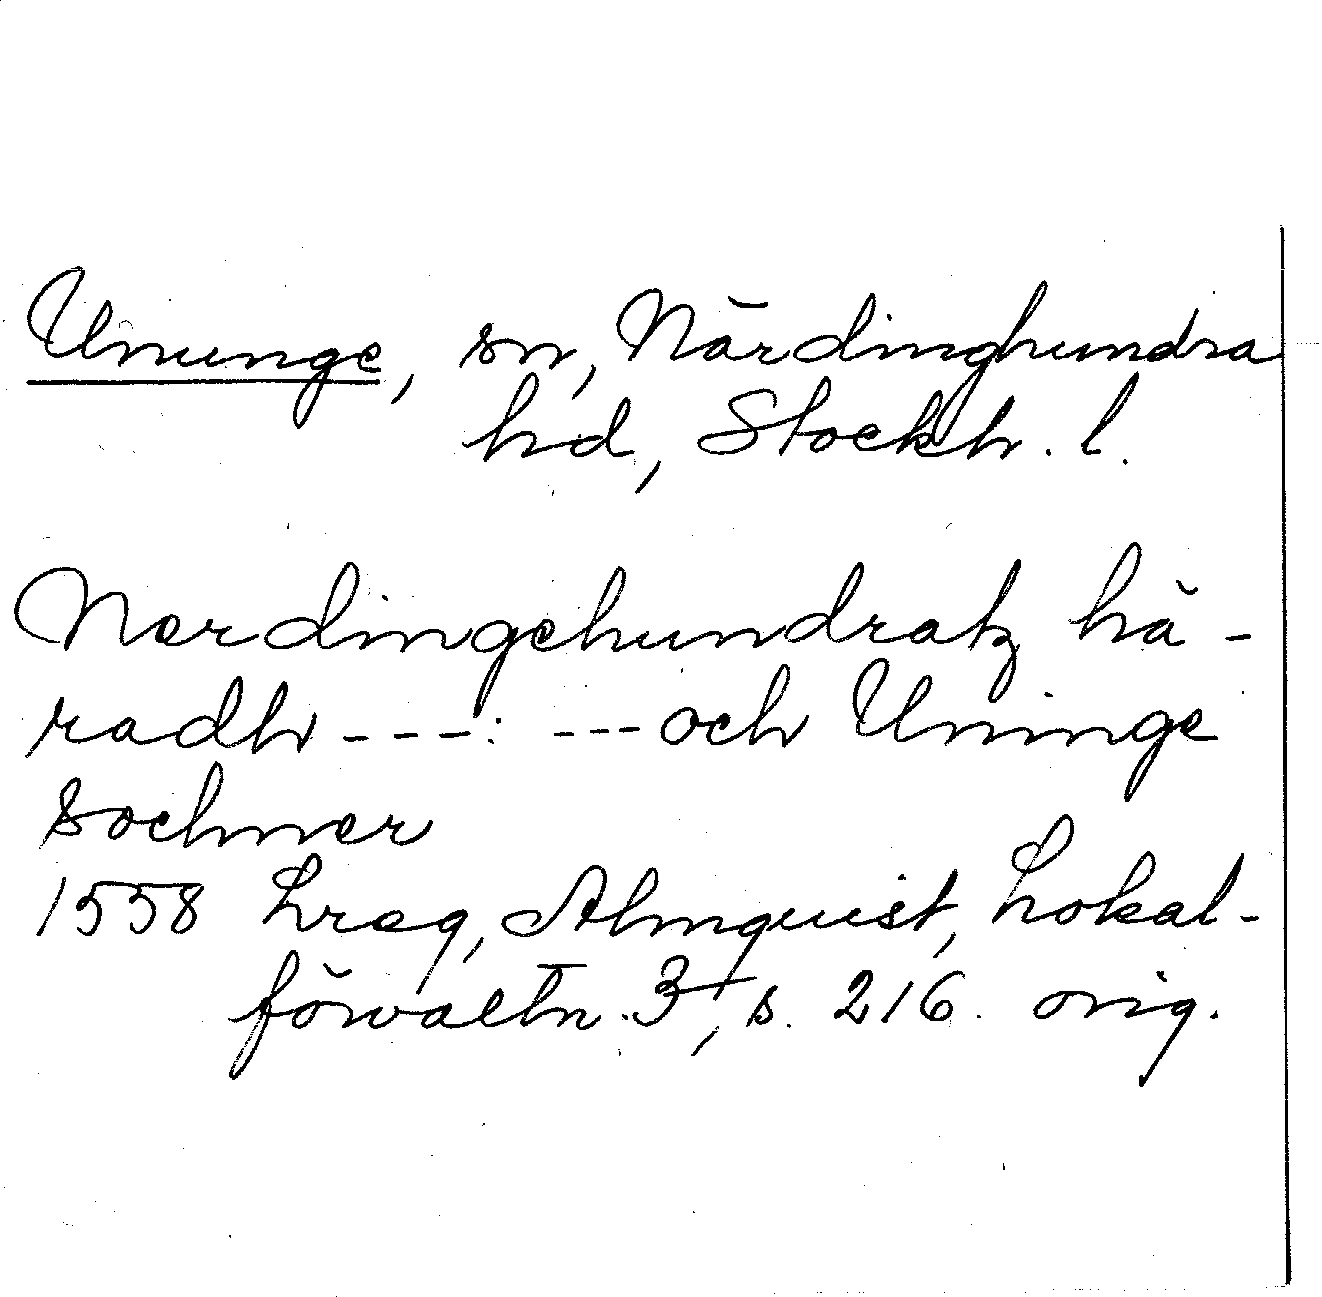 Ununge, sn, Närdinghundra
hd, Stockh. l.
Nerdingehundratz hä-
radh ---: --- och Uninge
sochner
1558 Lreg, Almquist, Lokal-
förvaltn. 3, s. 216. orig.